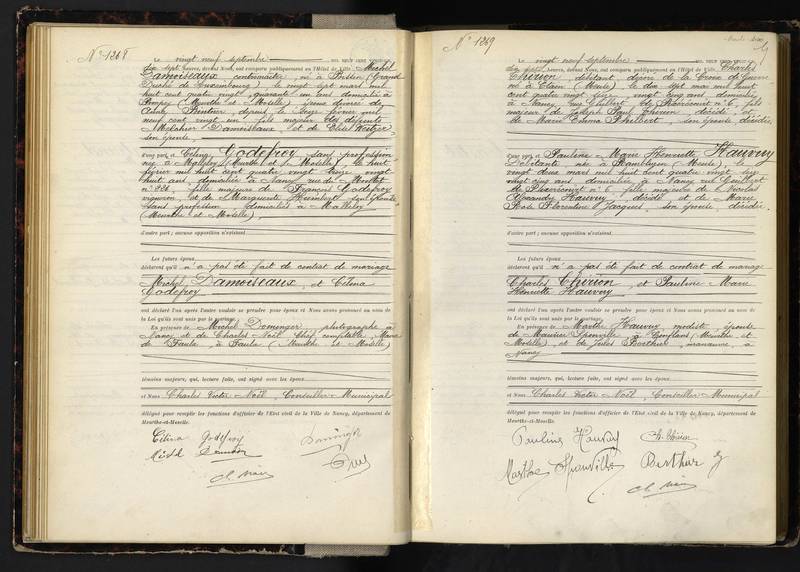 N° 1268
Le vingt neuf septembre mil neuf cent vingt
dix sept heures, devant Nous, ont comparu publiquement en l'Hôtel de Ville Michel
Damoiseaux contremaître, né à (Grand
Duché de Luxembourg), le vingt sept mars mil
huit cent quatre vingt, quarante un ans domicilié à
Pompey (Meurthe et Moselle), divorcé de
depuis le seize février mil
neuf cent vingt un, fils majeur des défunts
Melchior Damoiseaux et de
son épouse,
d'une part, et Célina Godefroy sans profession
née à Malleloy (Meurthe et Moselle) le sept
février mil huit cent quatre vingt treize vingt
huit ans, domiciliée à Nancy rue du Montet
n° 126, fille majeure de François Godefroy
vigneron, et de Marguerite Humbert son épouse
sans profession, domiciliés à Malleloy
(Meurthe et Moselle),
d'autre part; aucune opposition n'existant
Les futurs époux
déclarent qu'il n'a pas été fait de contrat de mariage
Michel Damoiseaux, et Célina
Godefroy
ont déclaré l'un après l'autre vouloir se prendre pour époux et Nous avons prononcé au nom de
la Loi qu'ils sont unis par le mariage.
En présence de Michel Dominger photographe à
Nancy et de Charles Noël Chef comptable,
de Faulx, à Faulx (Meurthe et Moselle)
témoins majeurs, qui, lecture faite, ont signé avec les époux
et Nous Charles Victor Noël, Conseiller Municipal
délégué pour remplir les fonctions d'officier de l'Etat civil de la Ville de Nancy, département de
Meurthe-et-Moselle.
Célina Godefroy
N° 1269
Le vingt neuf septembre mil neuf cent vingt
dix sept heures, devant Nous, ont comparu publiquement en l'Hôtel de Ville Charles
Thirion, débitant, décoré de la Croix de Guerre
né à Etain (Meuse) le dix sept mai mil huit
cent quatre vingt six, vingt cinq ans domicilié
à Nancy, rue Guilbert de Pixerécourt n° 6, fils
majeur de Joseph Paul Thirion, décédé, et
de Marie Emma Philbert, son épouse décédée
d'une part, et Pauline Marie Henriette Hauvuy
Débitante née à Rambluzin (Meuse), le
vingt deux mars mil huit cent quatre vingt six
vingt cinq ans, domiciliée à Nancy rue Guilbert
de Pixerécourt n° 6 fille majeure de Nicolas
Alexandre Hauvuy, décédé et de Marie
Rose Florentine Jacques, son épouse, décédée,
d'autre part; aucune opposition n'existant
Les futurs époux
déclarent qu'il n'a pas été fait de contrat de mariage
Charles Thirion, et Pauline Marie
Henriette Hauvuy
ont déclaré l'un après l'autre vouloir se prendre pour époux et Nous avons prononcé au nom de
la Loi qu'ils sont unis par le mariage.
En présence de Marthe Hauvuy modiste, épouse
de Maurice à Conflans (Meurthe et
Moselle), et de Jules Berthier, à
Nancy
témoins majeurs, qui, lecture faite, ont signé avec les époux
et Nous Charles Victor Noël, Conseiller Municipal
délégué pour remplir les fonctions d'officier de l'Etat civil de la Ville de Nancy, département de
Meurthe-et-Moselle.
Pauline Hauvuy Ch. Thirion
Marthe